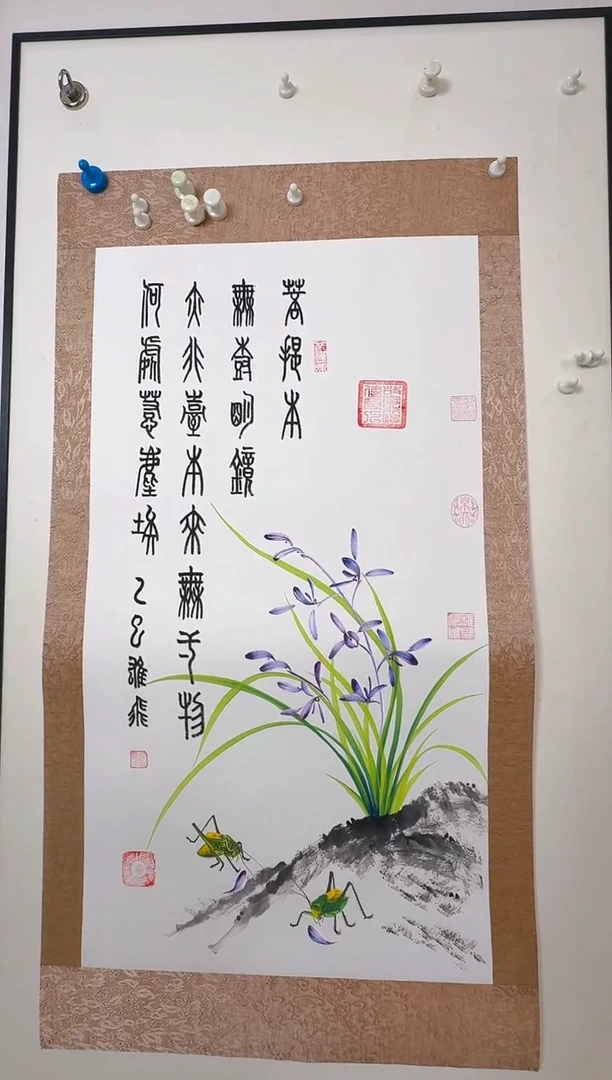 菩提本
無樹明鏡
亦非臺本來無弌物
何處惹塵埃
乙巳